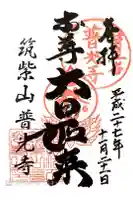 奉拝
平成二十七年
十一月二十二日
本尊 大日如来
筑紫山 普光寺